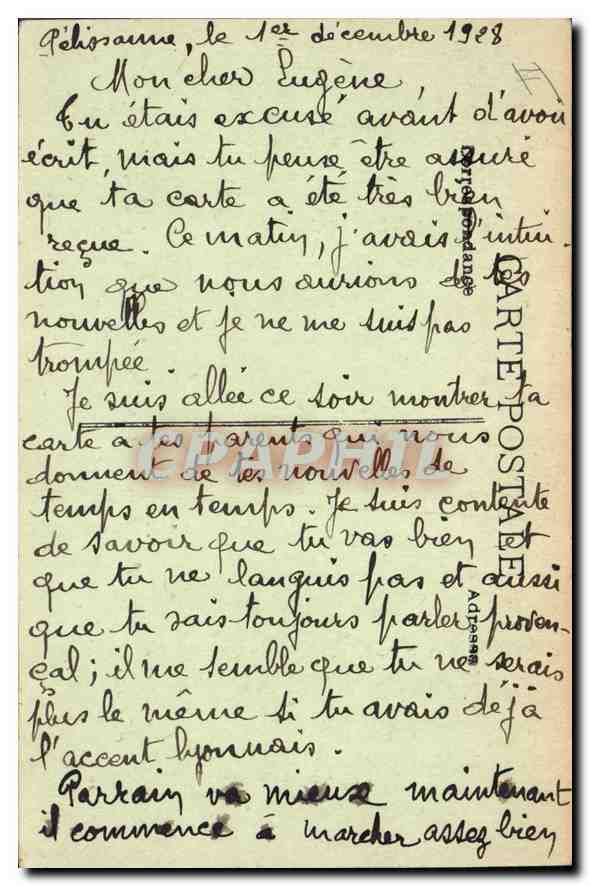 Pélissanne, le 1er décembre 1928
Mon cher Eugène,
Tu étais excusé avant d'avoir
écrit, mais tu peux être assuré
que ta carte a été très bien
reçue. Ce matin, j'avais l'intui-
tion que nous aurions de tes
nouvelles et je ne me suis pas
trompée.
Je suis allée ce soir montrer ta
carte à tes parents qui nous
donnent de tes nouvelles de
temps en temps. Je suis contente
de savoir que tu vas bien et
que tu ne languis pas et aussi
que tu sais toujours parler proven-
çal; il me semble que tu ne serais
plus le même si tu avais déjà
l'accent lyonnais.
Parrain va mieux maintenant
il commence à marcher assez bien
II
Correspondance
CARTE POSTALE
Adresse
CPAPHIL